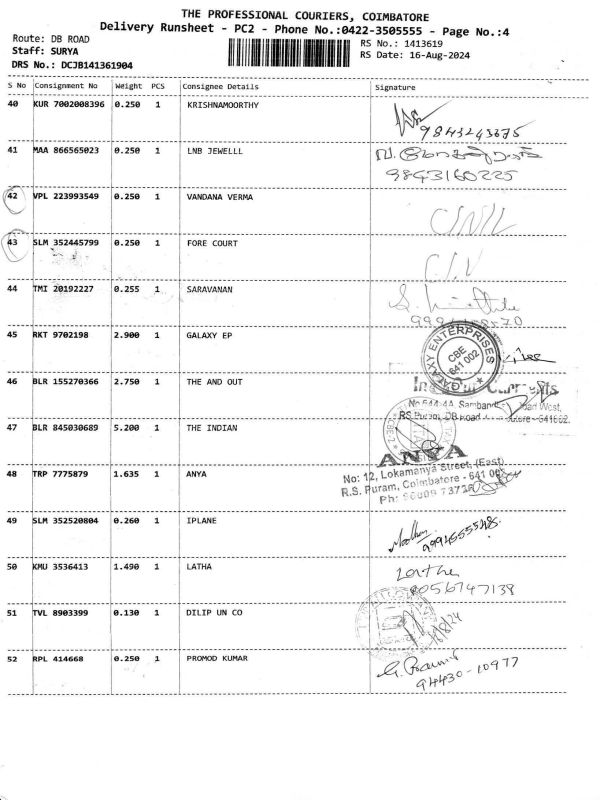 THE PROFESSIONAL COURIERS, COIMBATORE
Delivery Runsheet - PC2 - Phone No.:0422-3505555 - Page No.:4
Route: DB ROAD
Staff: SURYA
DRS No.: DCJB141361904
RS No.: 1413619
RS Date: 16-Aug-2024
S No Consignment No Weight PCS Consignee Details Signature
40 KUR 7002008396 0.250 1 KRISHNAMOORTHY
9843243675
41 MAA 866565023 0.250 1 LNB JEWELLL
9843160225
42 VPL 223993549 0.250 1 VANDANA VERMA
43 SLM 352445799 0.250 1 FORE COURT
44 TMI 20192227 0.255 1 SARAVANAN
45 RKT 9702198 2.900 1 GALAXY EP
GALAXY ENTERPRISES
CBE
641 002
46 BLR 155270366 2.750 1 THE AND OUT
No 544-4A, West,
RS Puram, DB Road - 641002.
47 BLR 845030689 5.200 1 THE INDIAN
ANYA
48 TRP 7775879 1.635 1 ANYA
No: 12, Lokamanya Street, (East)
R.S. Puram, Coimbatore - 641 002
49 SLM 352520804 0.260 1 IPLANE
50 KMU 3536413 1.490 1 LATHA
Latha
8056747138
51 TVL 8903399 0.130 1 DILIP UN CO
16/8/24
52 RPL 414668 0.250 1 PROMOD KUMAR
94430-10977